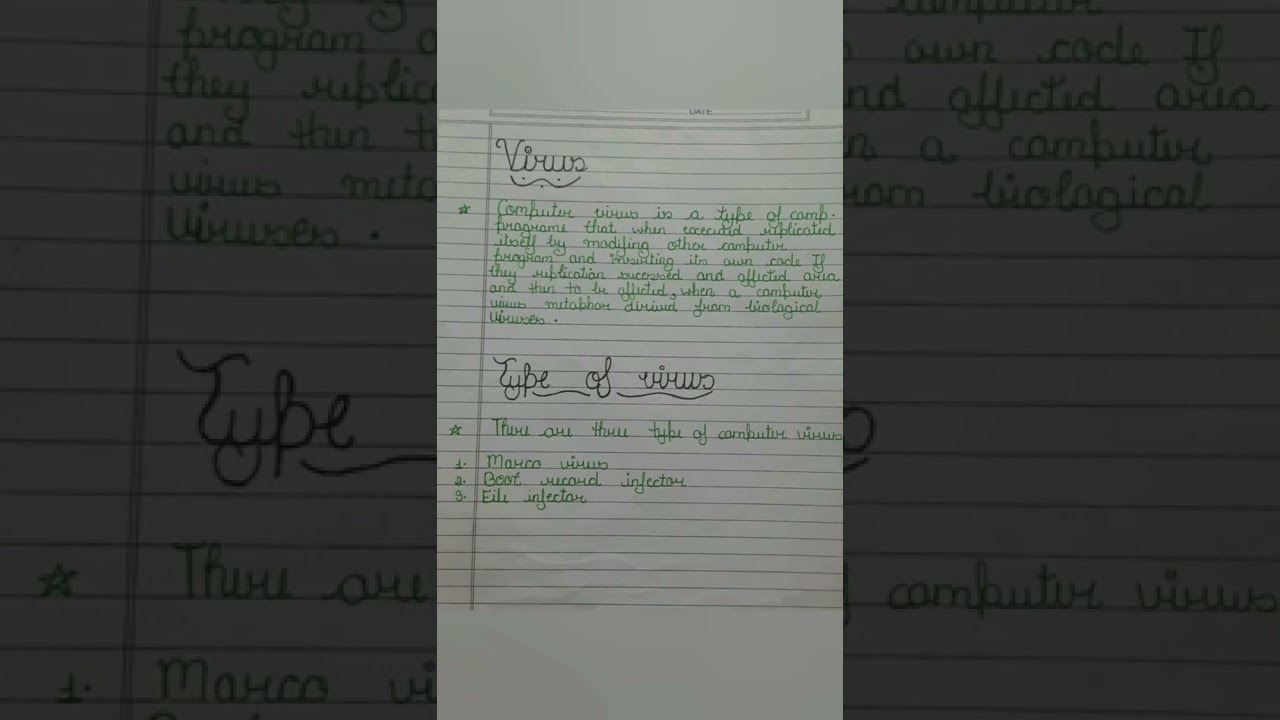 DATE
Virus
☆ Computer virus is a type of comp.
programe that when executed replicated
itself by modifing other computer
program and inserting its own code If
they replication sucessed and affected area
and then to be affected, when a computer
virus metaphor dirived from biological
Viruses.
Type of virus
☆ There are three type of computer virus
1. Marco virus
2. Boot record infector
3. File infector